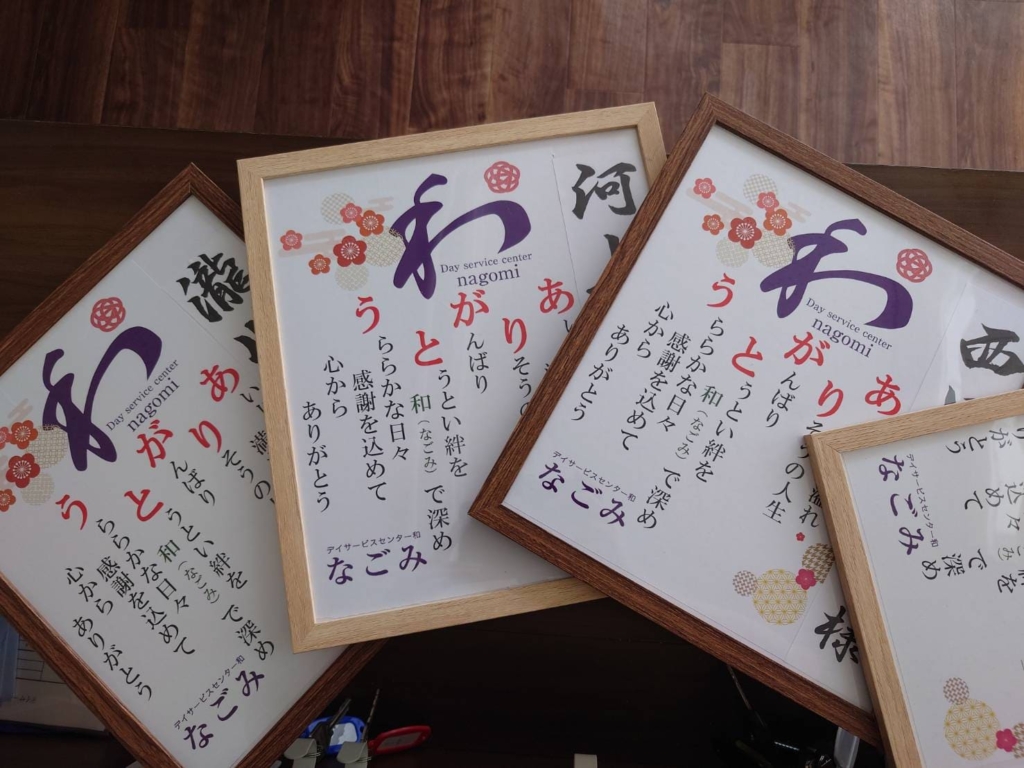 瀧
和
Day service center
nagomi
あい
りそうの
がんばり
とうとい絆を
和(なごみ)で深め
うららかな日々
感謝を込めて
心から
ありがとう
デイサービスセンター和
なごみ
河
和
Day service center
nagomi
あ
りそうの
がんばり
とうとい絆を
和(なごみ)で深め
うららかな日々
感謝を込めて
心から
ありがとう
デイサービスセンター和
なごみ
西
様
和
Day service center
nagomi
あ
溢れ
りそうの人生
がんばり
とうとい絆を
和(なごみ)で深め
うららかな日々
感謝を込めて
心から
ありがとう
デイサービスセンター和
なごみ
を
で深め
込めて
がとう
デイサービスセンター和
なごみ